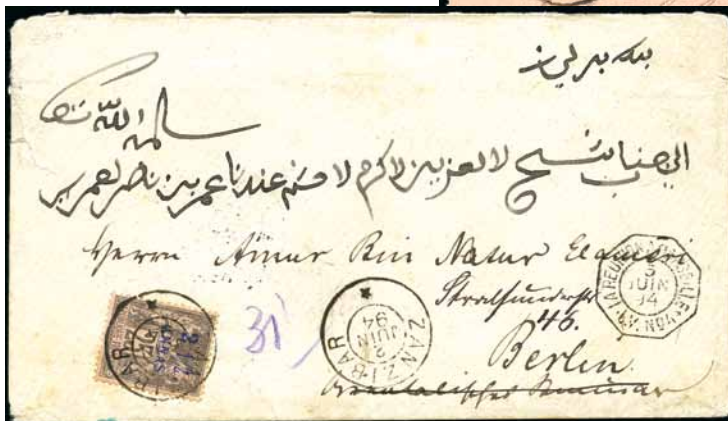 بلد برلين
سلمه الله تعالى
الى جناب الشيخ الاعز الاكرم عندنا عمر بن ناصر العميري
Herrn Amur Bin Natur Elameri
Stralsunderstr
46.
Berlin
Orientalisches Seminar
31
ZANZIBAR
2
JUIN
94
LA REUNION A MARSEILLE
3
JUIN
94
ZANZIBAR
2½
ANNAS